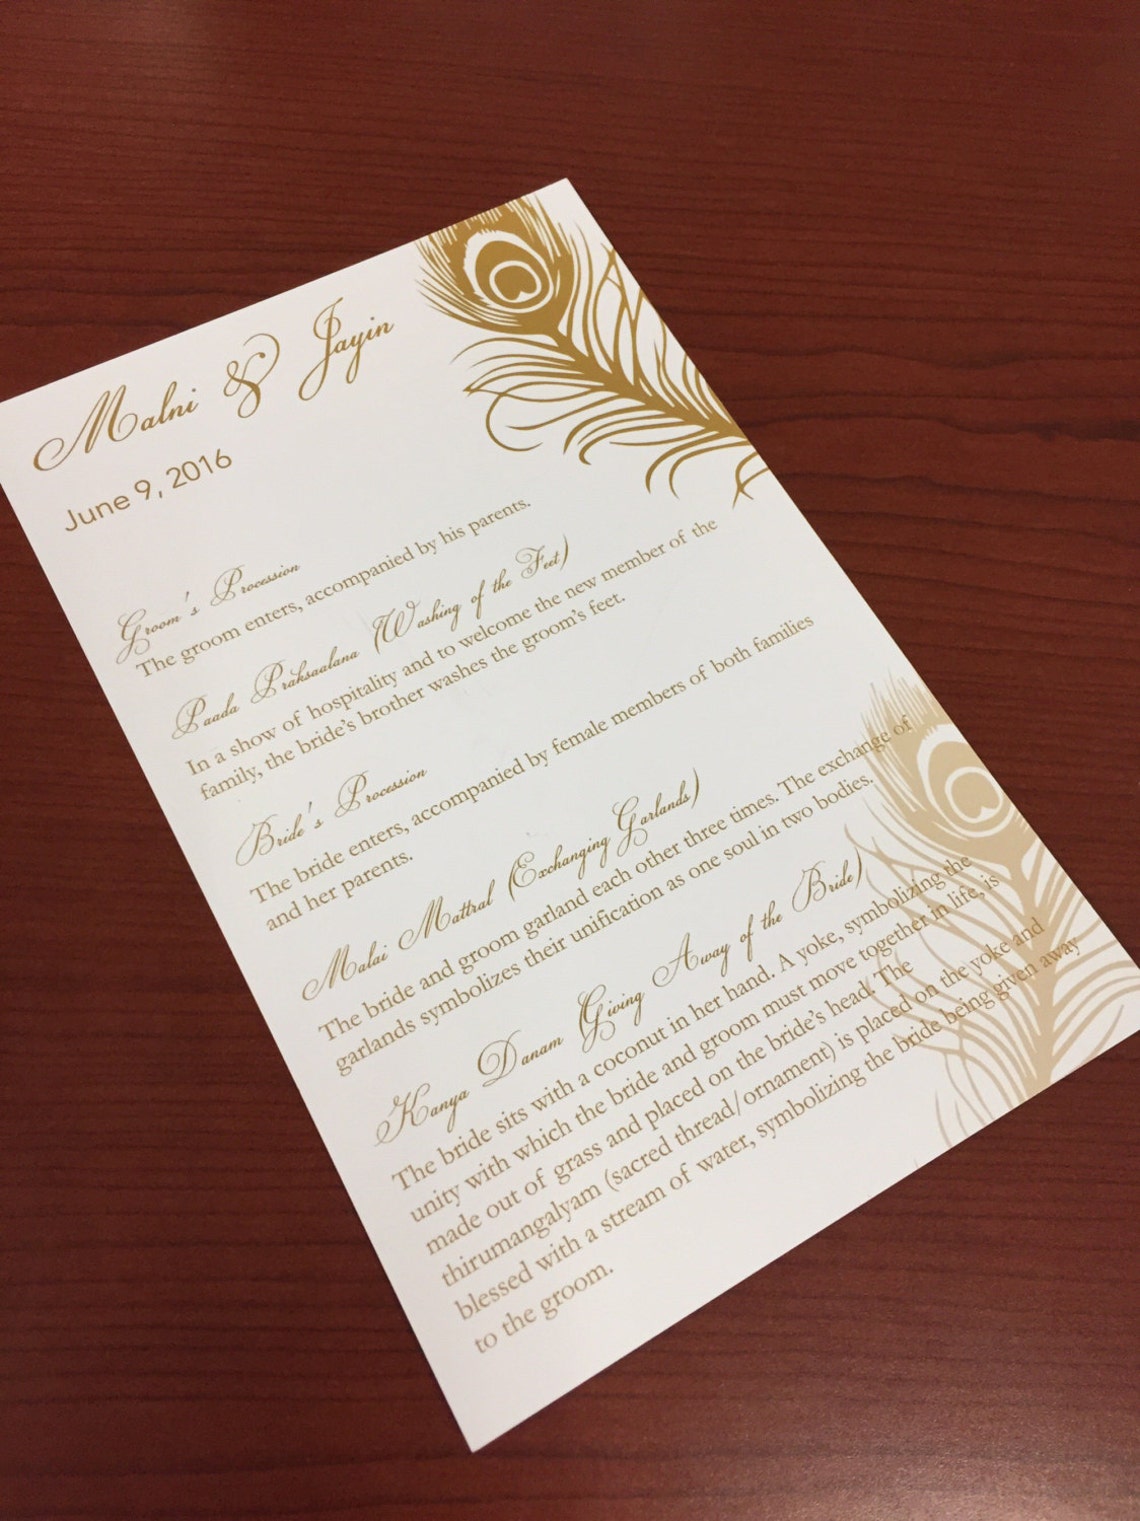 Malni & Jayin
June 9, 2016
Groom's Procession
The groom enters, accompanied by his parents.
Paada Praksaalana (Washing of the Feet)
In a show of hospitality and to welcome the new member of the
family, the bride's brother washes the groom's feet.
Bride's Procession
The bride enters, accompanied by female members of both families
and her parents.
Malai Mattral (Exchanging Garlands)
The bride and groom garland each other three times. The exchange of
garlands symbolizes their unification as one soul in two bodies.
Kanya Danam (Giving Away of the Bride)
The bride sits with a coconut in her hand. A yoke, symbolizing the
unity with which the bride and groom must move together in life, is
made out of grass and placed on the bride's head. The
thirumangalyam (sacred thread/ornament) is placed on the yoke and
blessed with a stream of water, symbolizing the bride being given away
to the groom.